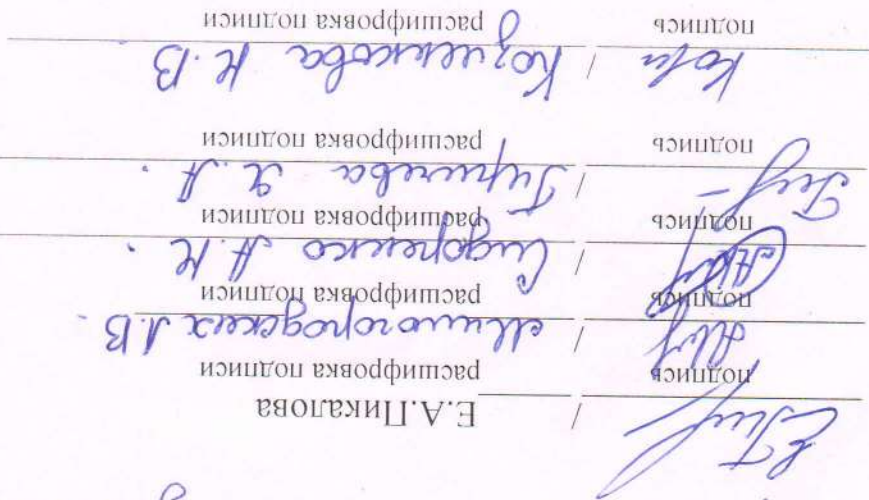 / Е.А.Пикалова
подпись расшифровка подписи
/ Миногородских Л.В.
подпись расшифровка подписи
/ Сидоренко А.Н.
подпись расшифровка подписи
/ Гиричева Я.А.
подпись расшифровка подписи
/ Козленкова Н.В
подпись расшифровка подписи